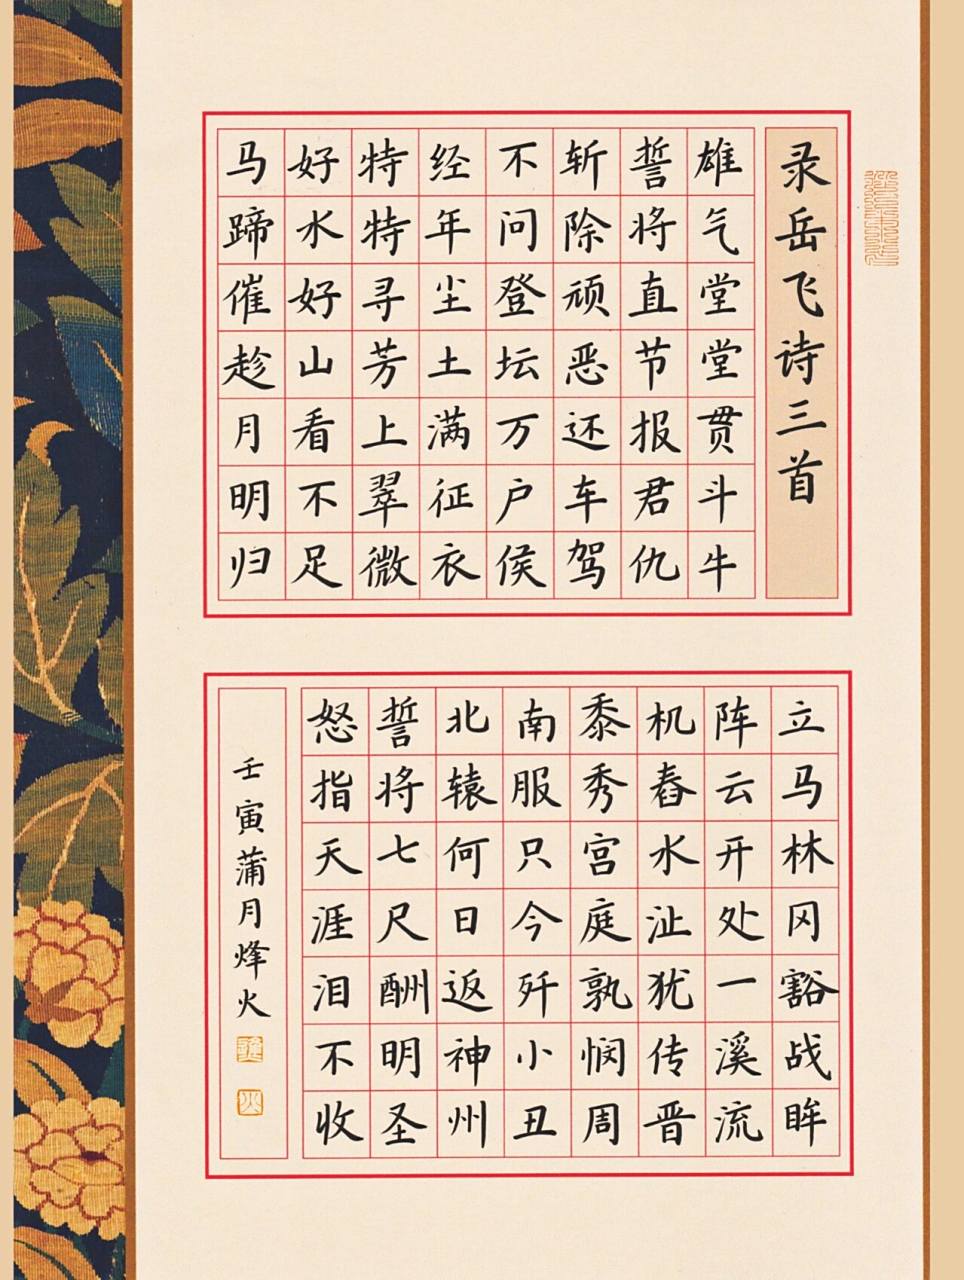 录岳飞诗三首
雄气堂堂贯斗牛
誓将直节报君仇
斩除顽恶还车驾
不问登坛万户侯
经年尘土满征衣
特特寻芳上翠微
好水好山看不足
马蹄催趁月明归
立马林冈豁战眸
阵云开处一溪流
机舂水沚犹传晋
黍秀宫庭孰悯周
南服只今歼小丑
北辕何日返神州
誓将七尺酬明圣
怒指天涯泪不收
壬寅蒲月烽火